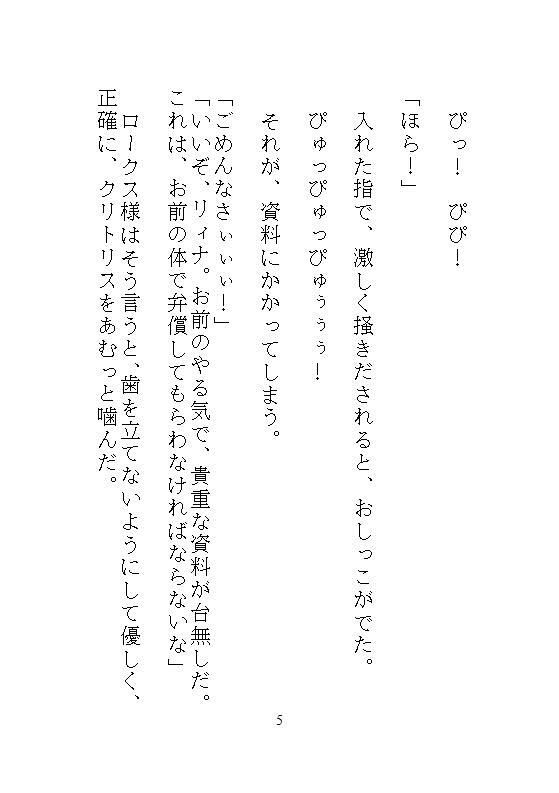 ぴっ！　ぴぴ！
「ほら！」
入れた指で、激しく掻きだされると、おしっこがでた。
ぴゅっぴゅっぴゅぅぅぅ！
それが、資料にかかってしまう。
「ごめんなさぃぃぃ！」
「いいぞ、リィナ。お前のやる気で、貴重な資料が台無しだ。
これは、お前の体で弁償してもらわなければならないな」
ロークス様はそう言うと、歯を立てないようにして優しく、
正確に、クリトリスをあむっと噛んだ。
5